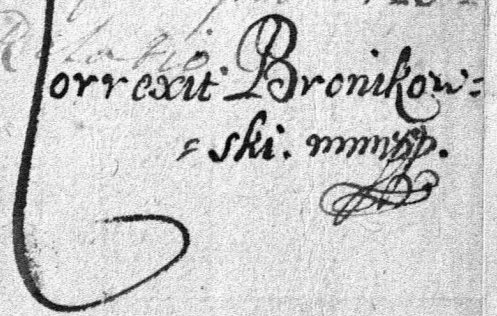 Correxit Bronikow=
=ski. mmpp.